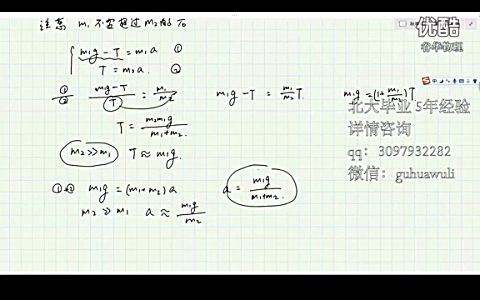 注意 m₁ 不要超过 m₂
优酷
m₁g - T = m₁a ①
T = m₂a. ②
①/② (m₁g - T)/T = m₁/m₂ m₁g - T = m₁/m₂ T. m₁g = (1+ m₁/m₂)T
T = m₂m₁g/(m₁+m₂)
m₂>>m₁ T ≈ m₁g.
①+② m₁g = (m₁+m₂)a a = m₁g/(m₁+m₂)
m₂ >> m₁ a ≈ m₁g/m₂
北大毕业 5年经验
详情咨询
qq: 3097932282
微信: guhuawuli